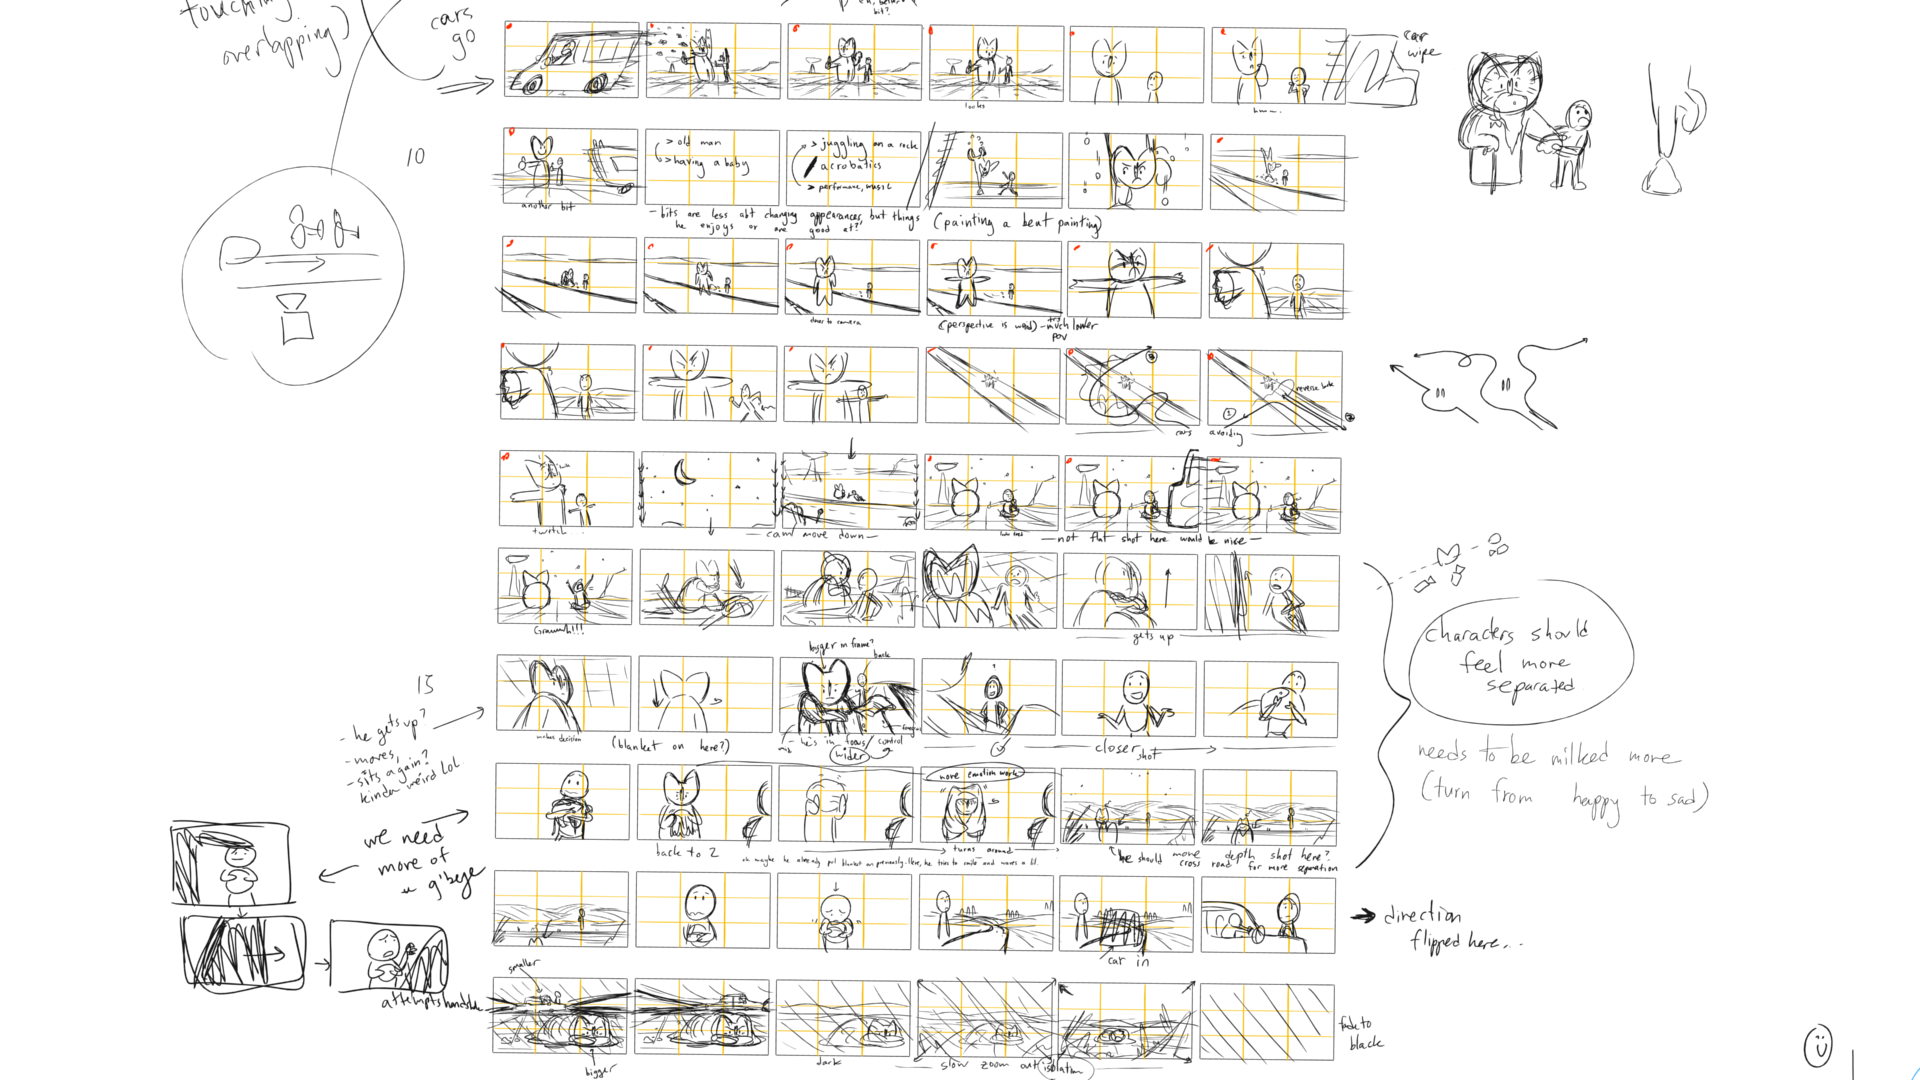 touching
overlapping)
cars
go
bit?
car
wipe
looks
hmm...
10
another bit
> old man
> having a baby
> juggling on a rock
acrobatics
> performance, music
- bits are less abt changing appearances, but things
he enjoys or are good at?
(painting a beat painting)
closer to camera
(perspective is weird) - try much lower
pov
reverse
cars avoiding
twitch
- cam move down -
- not flat shot here would be nice -
Grauuuh!!!
gets up
characters should
feel more
separated
needs to be milked more
(turn from happy to sad)
15
- he gets up?
- moves,
- sits again?
kinda weird lol
makes decision
(blanket on here?)
bigger in frame?
back
- he's in focus / control
wider
closer shot
we need
more of
a g'bye
attempts handshake
back to 2
more emotion work
turns around
oh maybe he already put blanket on previously. Here, he tries to smile and waves a lil.
he should move cross road for more separation
depth shot here?
car in
direction
flipped here...
smaller
bigger
dark
slow zoom out isolation
fade to
black